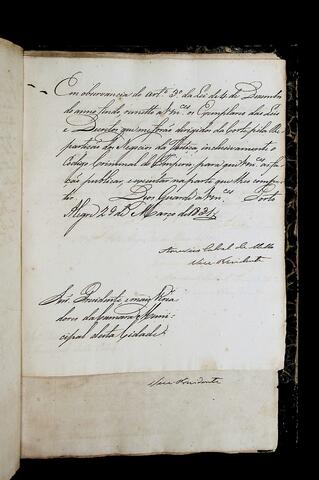 Em observancia do artº. 3º da Lei de 4 de Dezembro
do anno findo, remetto a Vmces. os Exemplares das Leis
e Decretos que me forão dirigidos da Corte pela Re-
partição dos Negocios da Justiça, inclusivamente o
Codigo Criminal do Imperio, para que Vmces. os fa-
ção publicar, e executar na parte que lhes compe-
tir. Deos Guarde a Vmces. Porto
Alegre 29 de Março de 1831
Americo Cabral de Mello
Vice Presidente
Snrs. Presidente e mais Verea-
dores da Camara Muni-
cipal desta Cidade
Vice Presidente